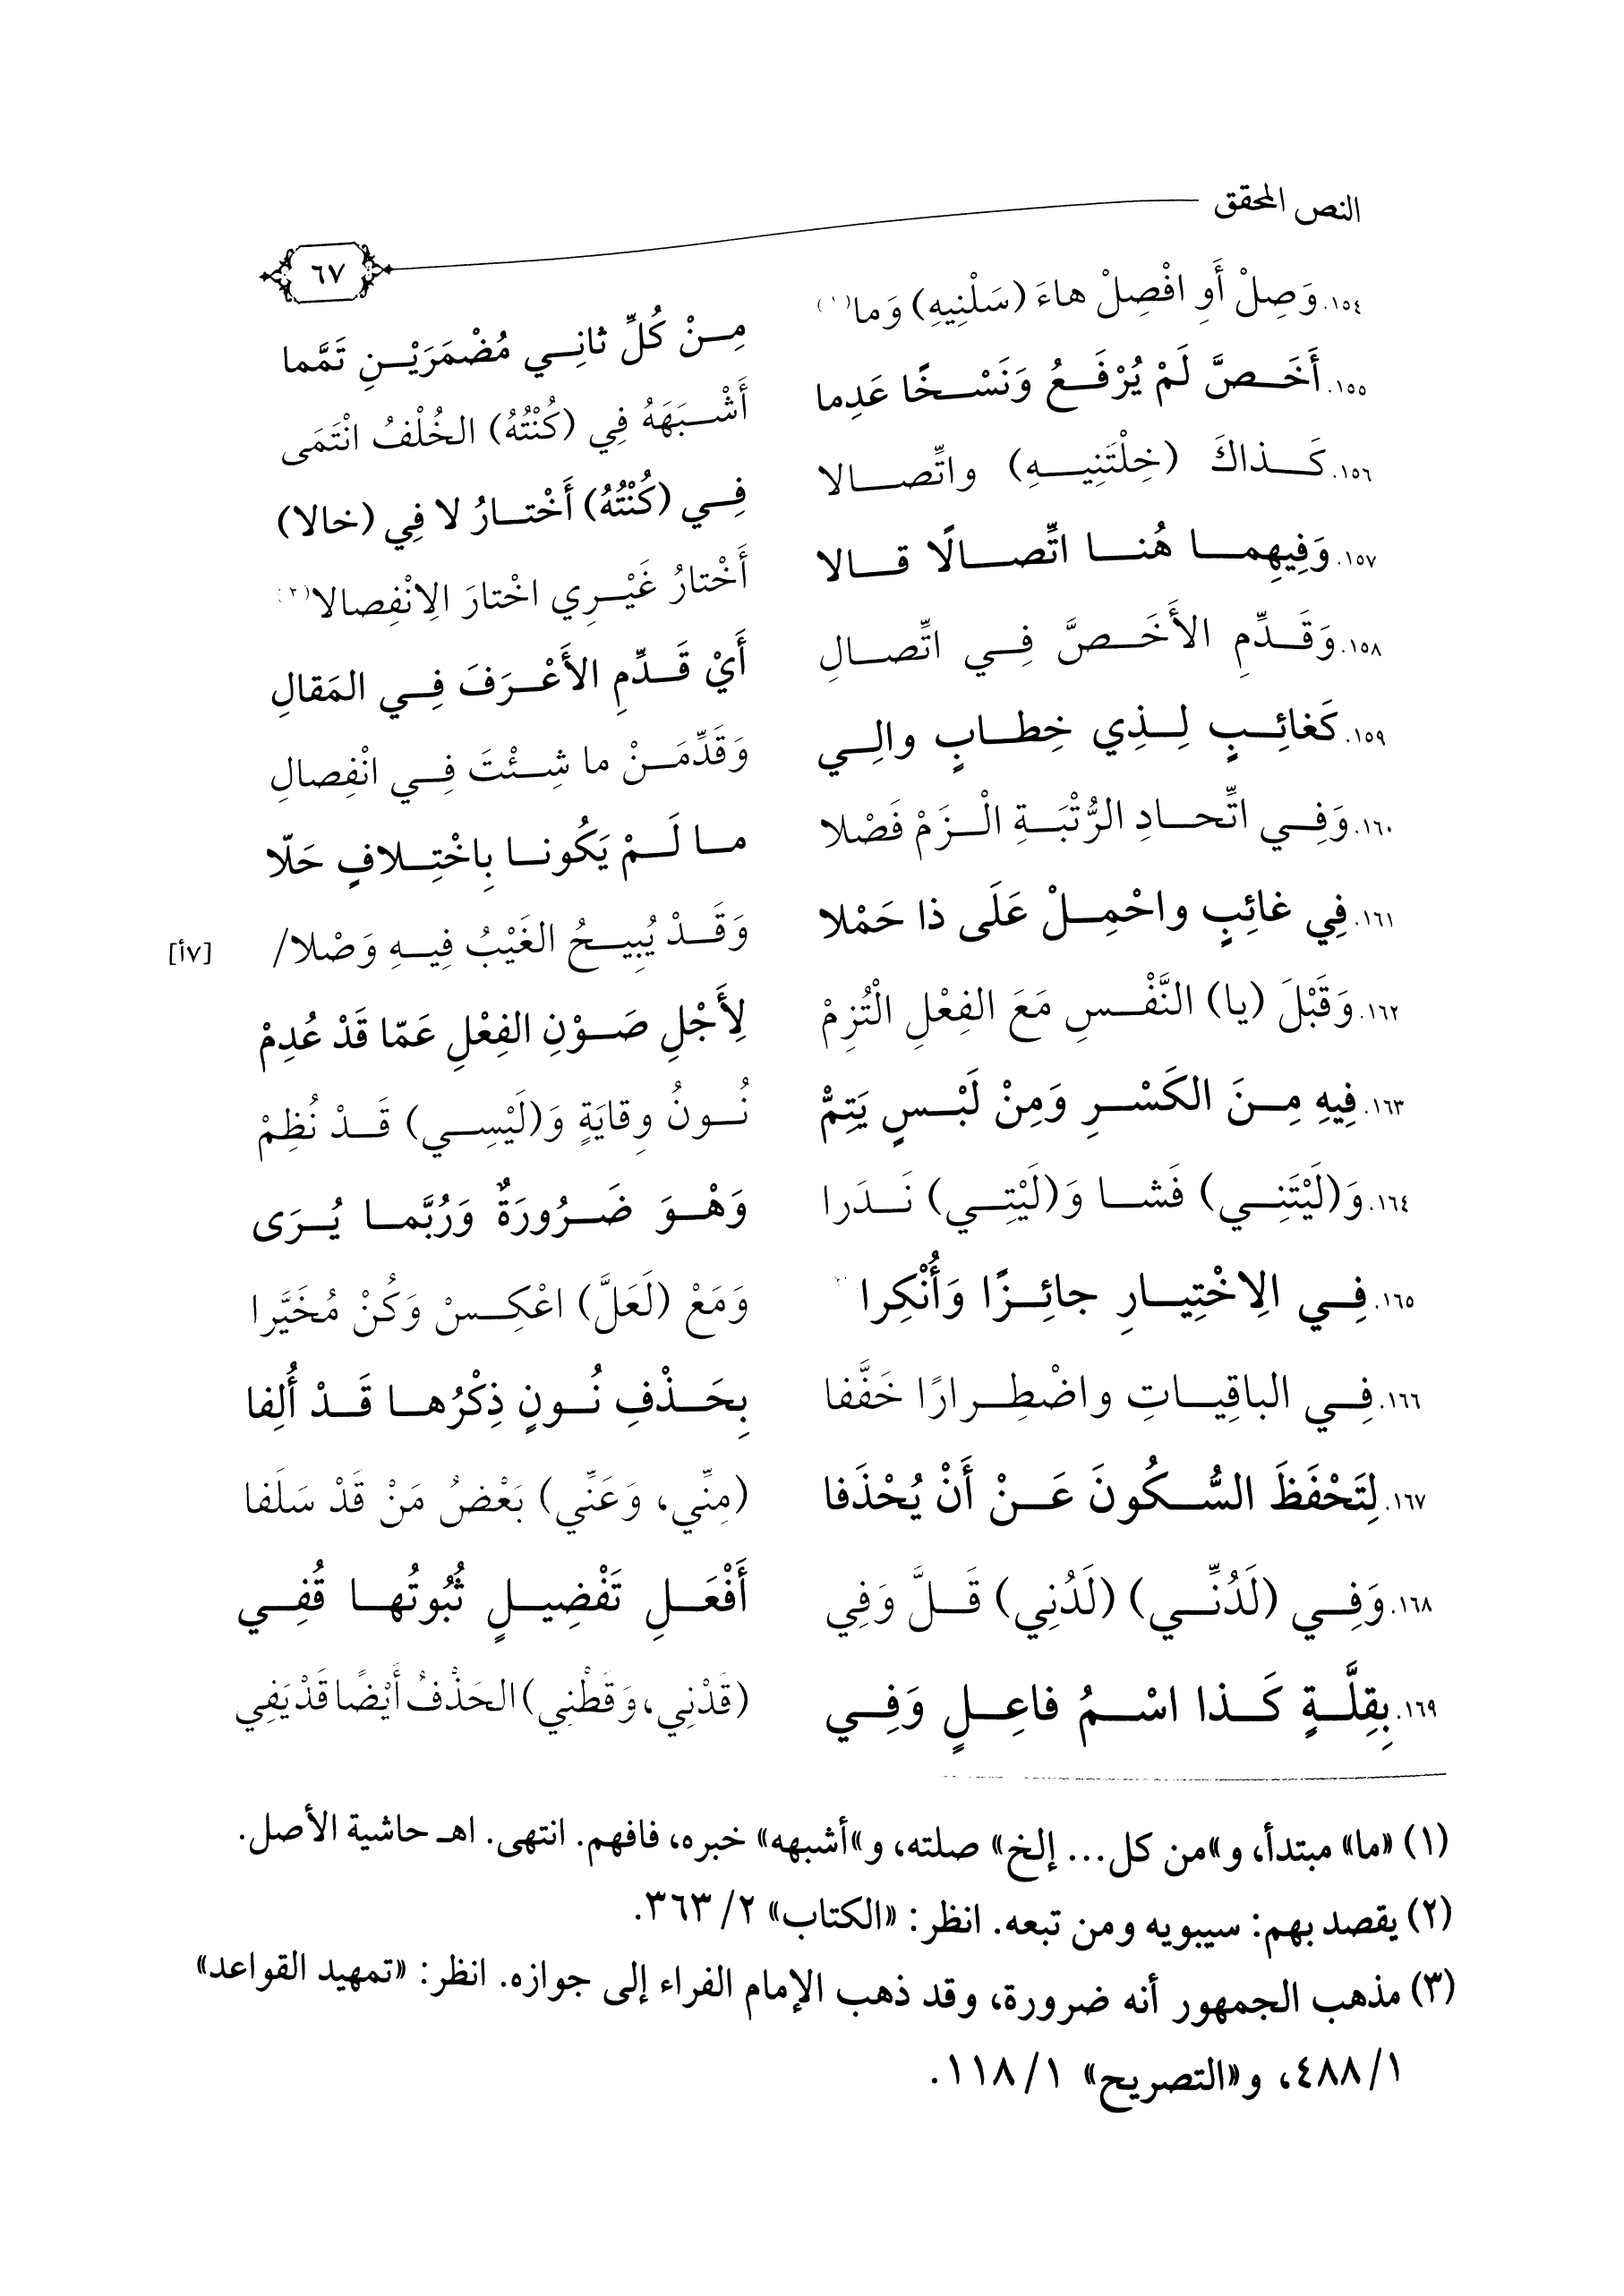 النص المحقق
٦٧
١٥٤. وَصِلْ أَوِ افْصِلْ هاءَ (سَلْنِيهِ) وَما(١) مِنْ كُلِّ ثانِي مُضْمَرَيْنِ تَمَّما
١٥٥. أَخَصَّ لَمْ يُرْفَعُ وَنَسْخًا عَدِما أَشْبَهَهُ فِي (كُنْتُهُ) الخُلْفُ انْتَمَى
١٥٦. كَذاكَ (خِلْتَنِيهِ) واتِّصالا فِي (كُنْتُهُ) أَخْتارُ لا فِي (خالا)
١٥٧. وَفِيهِما هُنا اتِّصالًا قالا أَخْتارُ غَيْرِي اخْتارَ الِانْفِصالا(٢)
١٥٨. وَقَدِّمِ الأَخَصَّ فِي اتِّصالِ أَيْ قَدِّمِ الأَعْرَفَ فِي المَقالِ
١٥٩. كَغائِبٍ لِذِي خِطابٍ والِي وَقَدِّمَنْ ما شِئْتَ فِي انْفِصالِ
١٦٠. وَفِي اتِّحادِ الرُّتْبَةِ الْزَمْ فَصْلا ما لَمْ يَكُونا بِاخْتِلافٍ حَلّا
١٦١. فِي غائِبٍ واحْمِلْ عَلَى ذا حَمْلا وَقَدْ يُبِيحُ الغَيْبُ فِيهِ وَصْلا/ [٧أ]
١٦٢. وَقَبْلَ (يا) النَّفْسِ مَعَ الفِعْلِ الْتُزِمْ لِأَجْلِ صَوْنِ الفِعْلِ عَمّا قَدْ عُدِمْ
١٦٣. فِيهِ مِنَ الكَسْرِ وَمِنْ لَبْسٍ يَتِمّْ نُونُ وِقايَةٍ وَ(لَيْسِي) قَدْ نُظِمْ
١٦٤. وَ(لَيْتَنِي) فَشا وَ(لَيْتِي) نَدَرا وَهْوَ ضَرُورَةٌ وَرُبَّما يُرَى
١٦٥. فِي الِاخْتِيارِ جائِزًا وَأُنْكِرا وَمَعْ (لَعَلَّ) اعْكِسْ وَكُنْ مُخَيَّرا
١٦٦. فِي الباقِياتِ واضْطِرارًا خَفَّفا بِحَذْفِ نُونٍ ذِكْرُها قَدْ أُلِفا
١٦٧. لِتَحْفَظَ السُّكُونَ عَنْ أَنْ يُحْذَفا (مِنِّي، وَعَنِّي) بَعْضُ مَنْ قَدْ سَلَفا
١٦٨. وَفِي (لَدُنِّي) (لَدُنِي) قَلَّ وَفِي أَفْعَلِ تَفْضِيلٍ ثُبُوتُها قُفِي
١٦٩. بِقِلَّةٍ كَذا اسْمُ فاعِلٍ وَفِي (قَدْنِي، وَقَطْنِي) الحَذْفُ أَيْضًا قَدْ يَفِي
(١) «ما» مبتدأ، و»من كل... إلخ» صلته، و»أشبهه» خبره، فافهم. انتهى. اهـ حاشية الأصل.
(٢) يقصد بهم: سيبويه ومن تبعه. انظر: «الكتاب» ٢/ ٣٦٣.
(٣) مذهب الجمهور أنه ضرورة، وقد ذهب الإمام الفراء إلى جوازه. انظر: «تمهيد القواعد»
١/ ٤٨٨، و«التصريح» ١/ ١١٨.